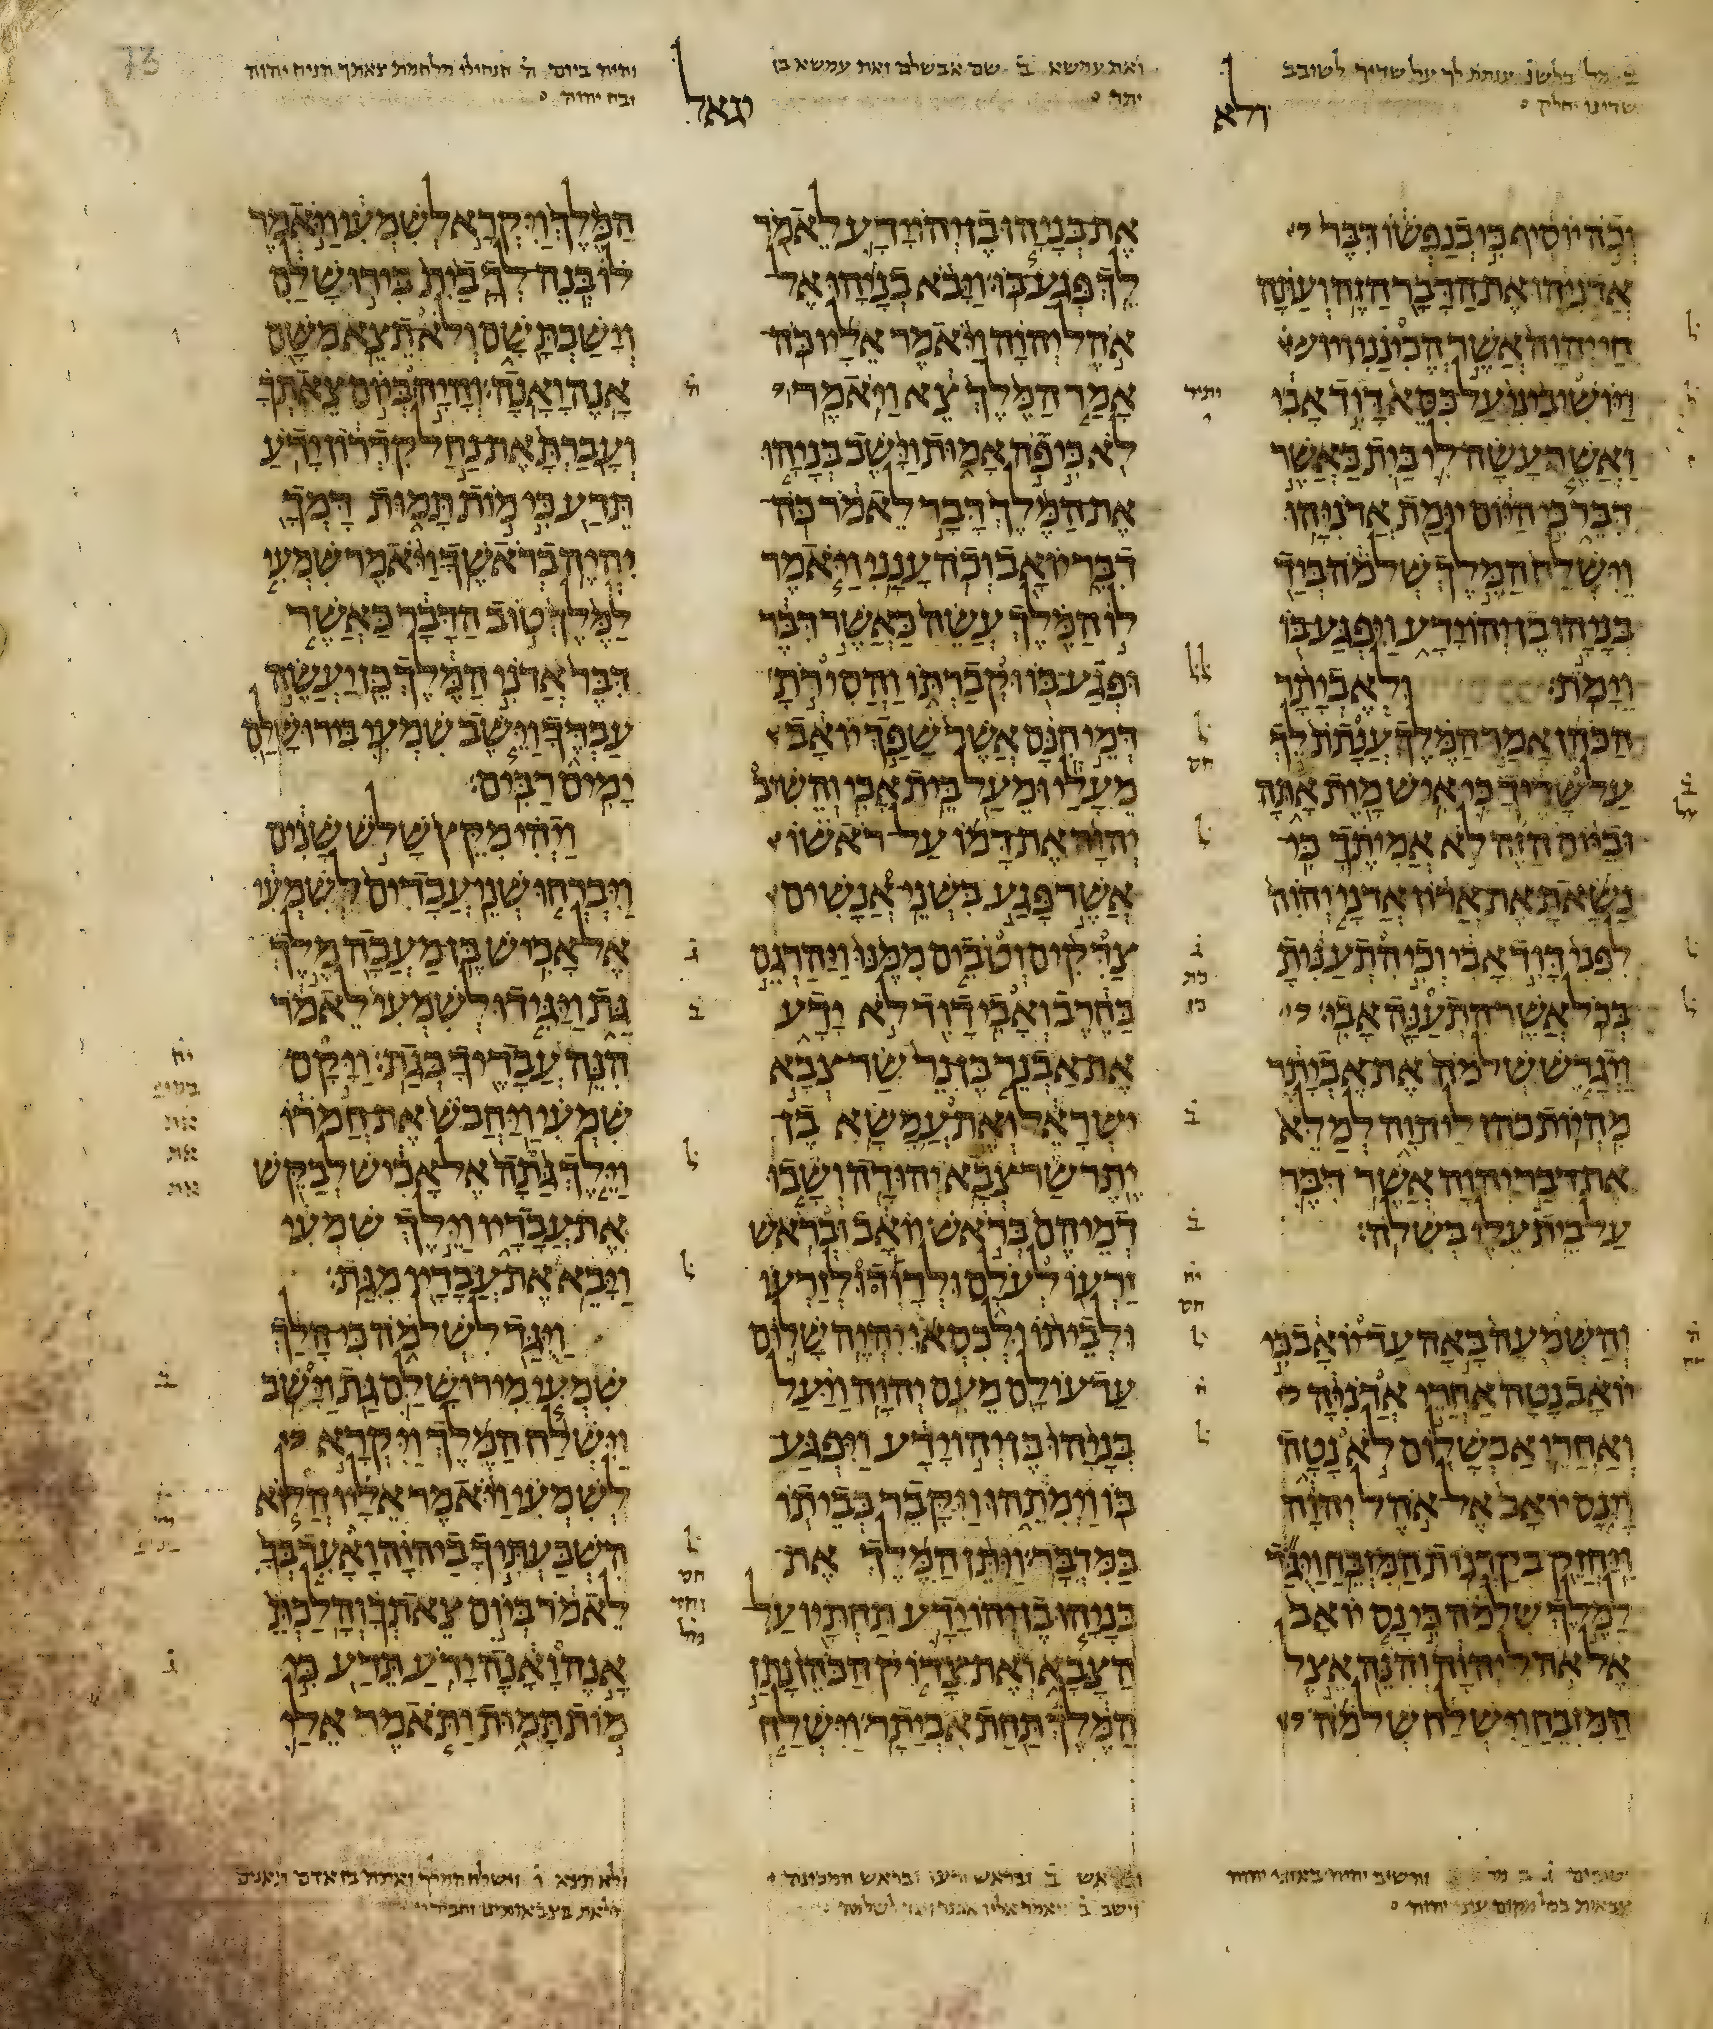 ולא יגאל
ב מל בלשנ ענתת לך על שדיך לשובב
שדינו יחלק
ואת עמשא ב שם אבשלם ואת עמשא בן
יתר
והיה ביום ה תנחילו מלחמת צאתך הניח יהוה
ובח יהוה
וכה יוסיף כי בנפשו דבר
אדניהו את הדבר הזה ועתה
חי יהוה אשר הכינני ויוש
ויושיביני על כסא דוד אבי
ואשר עשה לי בית כאשר
דבר כי היום יומת אדניהו
וישלח המלך שלמה ביד
בניהו בן יהוידע ויפגע בו
וימת׃ ולאביתר
הכהן אמר המלך ענתת לך
על שדיך כי איש מות אתה
וביום הזה לא אמיתך כי
נשאת את ארון אדני יהוה
לפני דוד אבי וכי התענית
בכל אשר התענה אבי׃
ויגרש שלמה את אביתר
מהיות כהן ליהוה למלא
את דבר יהוה אשר דבר
על בית עלי בשלה׃
והשמעה באה עד יואב כי
יואב נטה אחרי אדניה
ואחרי אבשלום לא נטה
וינס יואב אל אהל יהוה
ויחזק בקרנות המזבח ויגד
למלך שלמה כי נס יואב
אל אהל יהוה והנה אצל
המזבח וישלח שלמה
את בניהו בן יהוידע לאמר
לך פגע בו ויבא בניהו אל
אהל יהוה ויאמר אליו כה
אמר המלך צא ויאמר
לא כי פה אמות וישב בניהו
את המלך דבר לאמר כה
דבר יואב וכה ענני ויאמר
לו המלך עשה כאשר דבר
ופגע בו וקברתו והסירת
דמי חנם אשר שפך יואב
מעלי ומעל בית אבי והשיב
יהוה את דמו על ראשו
אשר פגע בשני אנשים
צדקים וטבים ממנו ויהרגם
בחרב ואבי דוד לא ידע
את אבנר בן נר שר צבא
ישראל ואת עמשא בן
יתר שר צבא יהודה ושבו
דמיהם בראש יואב ובראש
זרעו לעלם ולדוד ולזרעו
ולביתו ולכסאו יהיה שלום
עד עולם מעם יהוה ויעל
בניהו בן יהוידע ויפגע
בו וימתהו ויקבר בביתו
במדבר׃ ויתן המלך את
בניהו בן יהוידע תחתיו על
הצבא ואת צדוק הכהן נתן
המלך תחת אביתר׃ וישלח
המלך ויקרא לשמעי ויאמר
לו בנה לך בית בירושלם
וישבת שם ולא תצא משם
אנה ואנה׃ והיה ביום צאתך
ועברת את נחל קדרון ידע
תדע כי מות תמות דמך
יהיה בראשך ויאמר שמעי
למלך טוב הדבר כאשר
דבר אדני המלך כן יעשה
עבדך וישב שמעי בירושלם
ימים רבים׃
ויהי מקץ שלש שנים
ויברחו שני עבדים לשמעי
אל אכיש בן מעכה מלך
גת ויגידו לשמעי לאמר
הנה עבדיך בגת׃ ויקם
שמעי ויחבש את חמרו
וילך גתה אל אכיש לבקש
את עבדיו וילך שמעי
ויבא את עבדיו מגת׃
ויגד לשלמה כי הלך
שמעי מירושלם גת וישב
וישלח המלך ויקרא
לשמעי ויאמר אליו הלוא
השבעתיך ביהוה ואעד בך
לאמר ביום צאתך והלכת
אנה ואנה ידע תדע כי
מות תמות ותאמר אלי
והשיב יהוה
צבאות בכל מקום יהוה
ובראש זרעו ובראש
וישב ב ויאמר אליו
ולא תצא